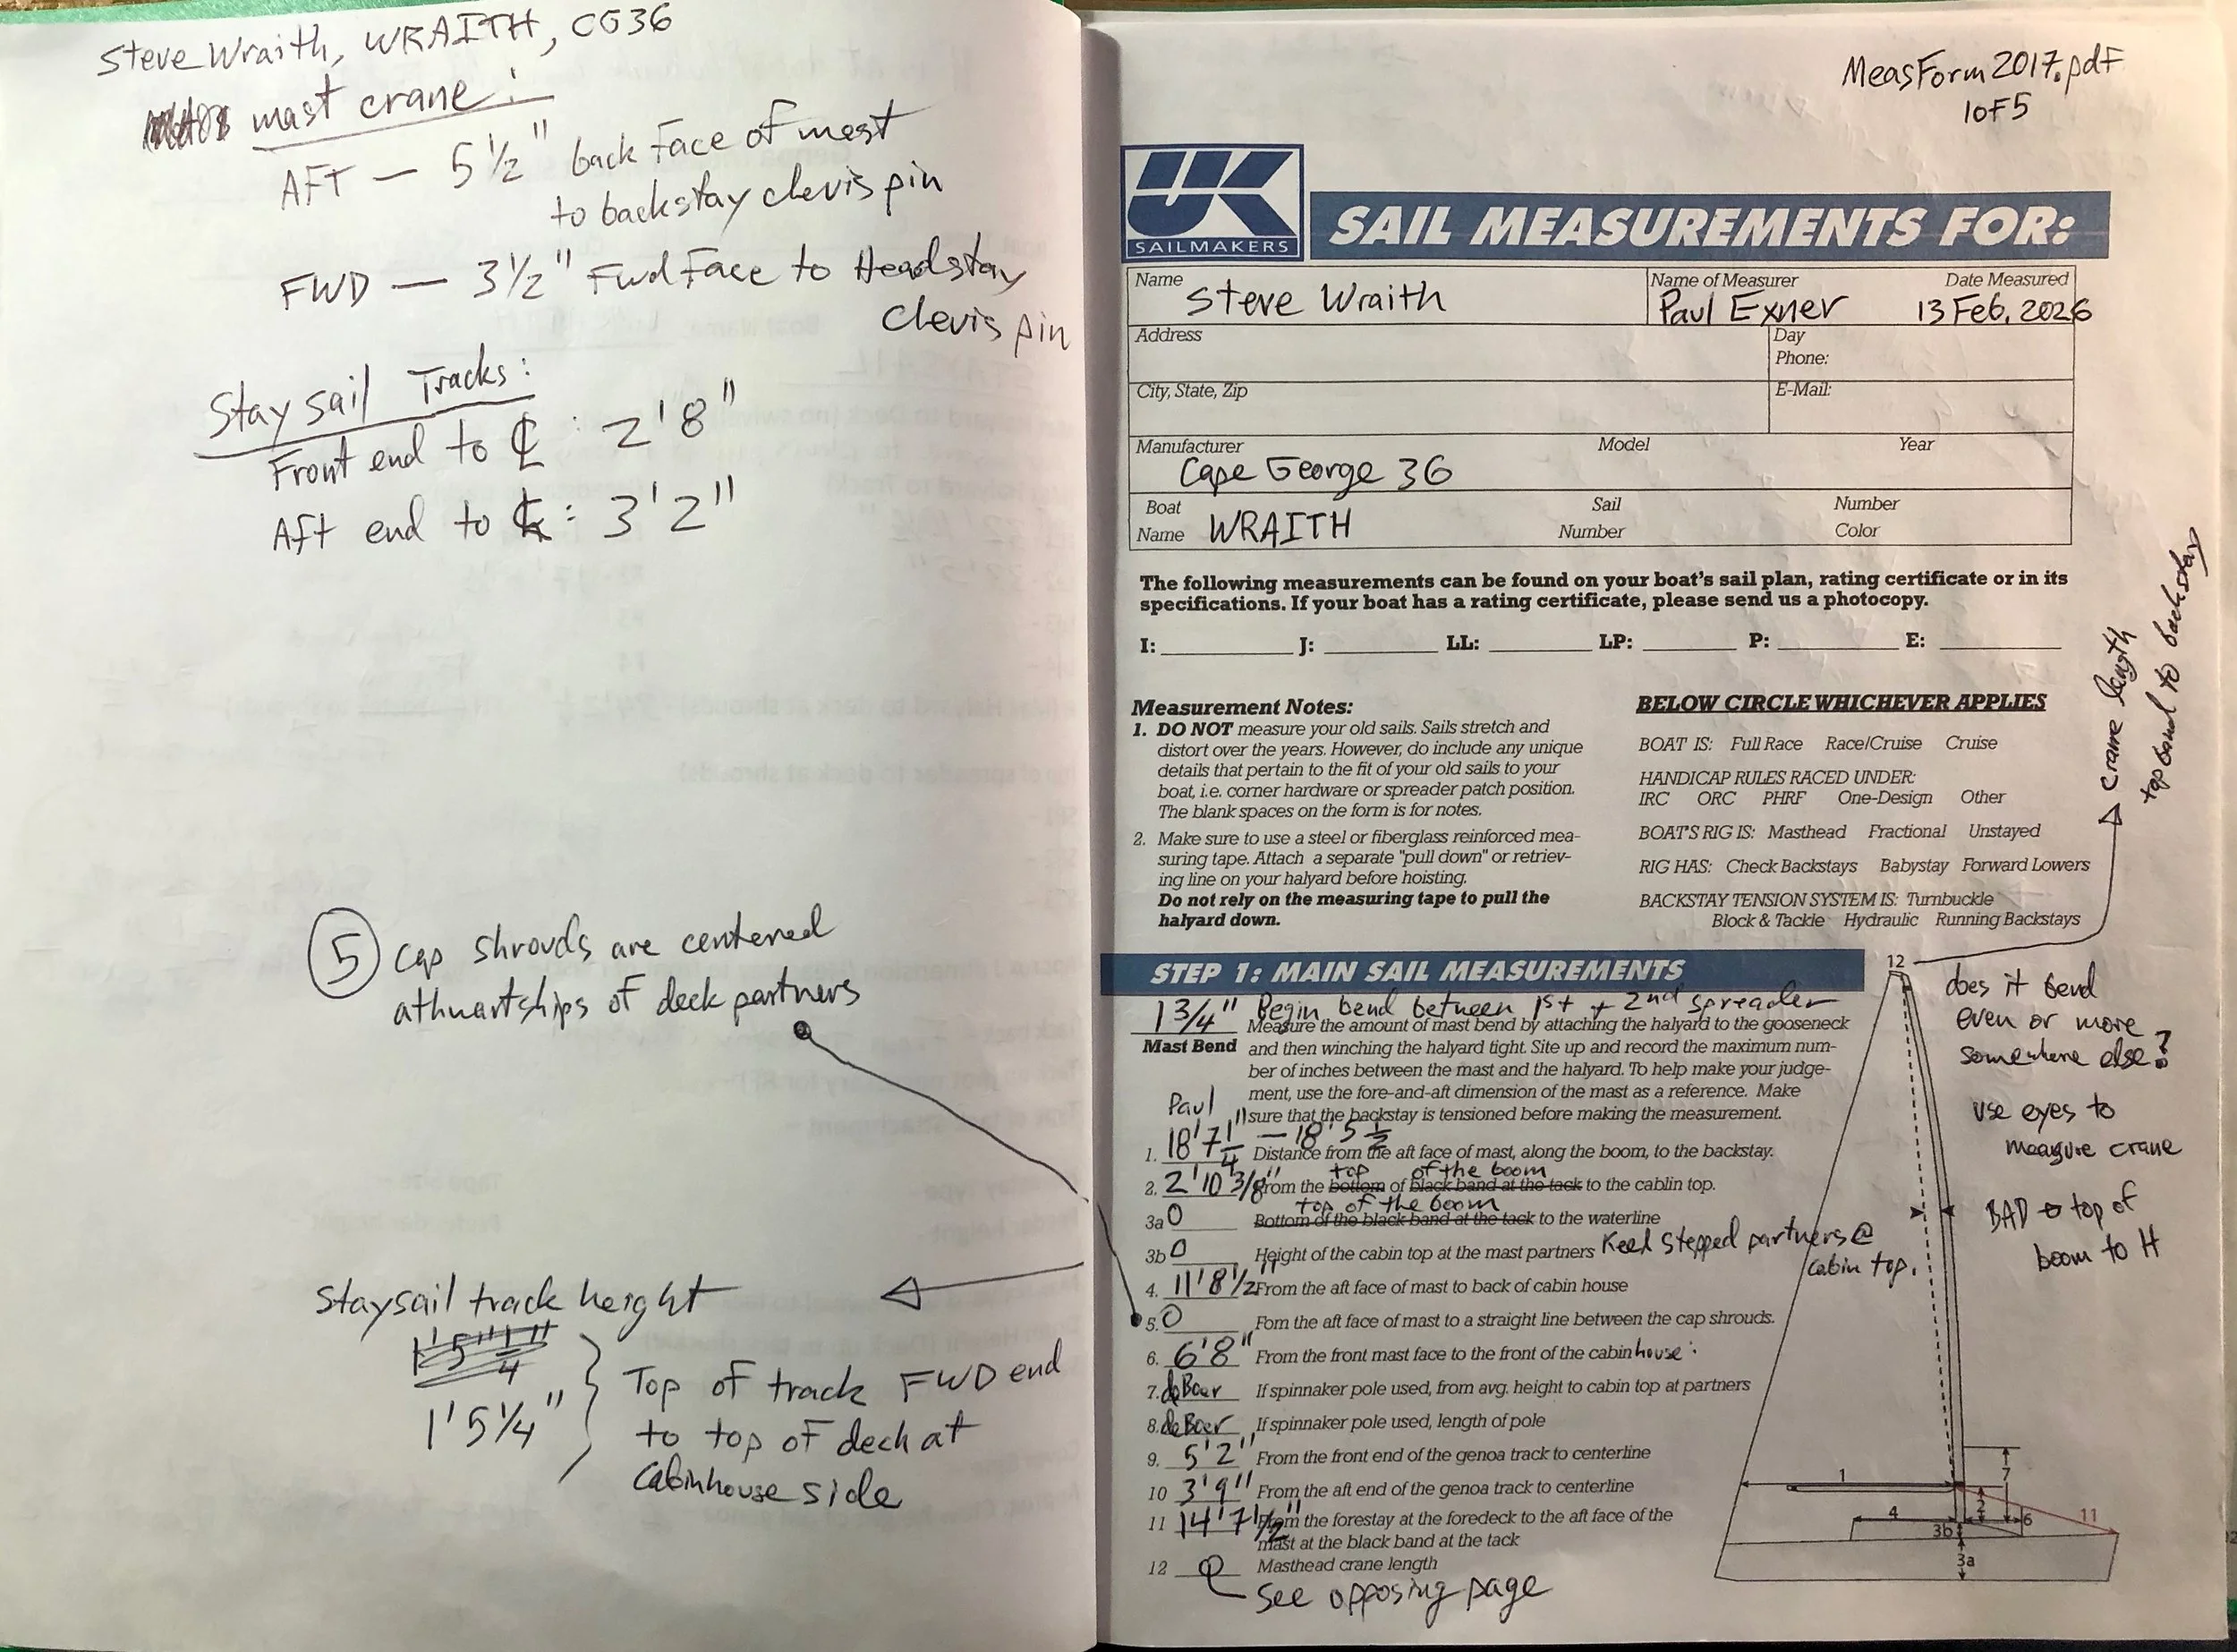 Steve Wraith, WRAITH, CG36
mast crane:
AFT — 5 1/2" back face of mast
to backstay clevis pin
FWD — 3 1/2" Fwd Face to Headstay
clevis pin
Staysail Tracks:
Front end to ℄ : 2'8"
Aft end to ℄ : 3'2"
5 cap shrouds are centered
athwartships of deck partners
Staysail track height
1'5 1/4"
1'5 1/4"
Top of track FWD end
to top of deck at
cabinhouse side
MeasForm2017.pdf
1 of 5
UK
SAILMAKERS
SAIL MEASUREMENTS FOR:
Name Steve Wraith
Name of Measurer Paul Exner
Date Measured 13 Feb, 2026
Address
Day
Phone:
City, State, Zip
E-Mail:
Manufacturer Cape George 36
Model
Year
Boat
Name WRAITH
Sail
Number
Number
Color
The following measurements can be found on your boat's sail plan, rating certificate or in its
specifications. If your boat has a rating certificate, please send us a photocopy.
I: J: LL: LP: P: E:
crane length
top band to backstay
Measurement Notes:
1. DO NOT measure your old sails. Sails stretch and
distort over the years. However, do include any unique
details that pertain to the fit of your old sails to your
boat, i.e. corner hardware or spreader patch position.
The blank spaces on the form is for notes.
2. Make sure to use a steel or fiberglass reinforced mea-
suring tape. Attach a separate "pull down" or retriev-
ing line on your halyard before hoisting.
Do not rely on the measuring tape to pull the
halyard down.
BELOW CIRCLE WHICHEVER APPLIES
BOAT IS: Full Race Race/Cruise Cruise
HANDICAP RULES RACED UNDER:
IRC ORC PHRF One-Design Other
BOAT'S RIG IS: Masthead Fractional Unstayed
RIG HAS: Check Backstays Babystay Forward Lowers
BACKSTAY TENSION SYSTEM IS: Turnbuckle
Block & Tackle Hydraulic Running Backstays
STEP 1: MAIN SAIL MEASUREMENTS
1 3/4" Begin bend between 1st + 2nd spreader
Mast Bend
Measure the amount of mast bend by attaching the halyard to the gooseneck
and then winching the halyard tight. Site up and record the maximum num-
ber of inches between the mast and the halyard. To help make your judge-
ment, use the fore-and-aft dimension of the mast as a reference. Make
sure that the backstay is tensioned before making the measurement.
Paul
1. 18'7 1/4" — 18'5 1/2 Distance from the aft face of mast, along the boom, to the backstay.
top of the boom
2. 2'10 3/8" From the bottom of black band at the tack to the cablin top.
top of the boom
3a 0 Bottom of the black band at the tack to the waterline
3b 0 Height of the cabin top at the mast partners Keel stepped partners @
cabin top.
4. 11'8 1/2" From the aft face of mast to back of cabin house
5. 0 Fom the aft face of mast to a straight line between the cap shrouds.
6. 6'8" From the front mast face to the front of the cabin house:
7. deBoer If spinnaker pole used, from avg. height to cabin top at partners
8. deBoer If spinnaker pole used, length of pole
9. 5'2" From the front end of the genoa track to centerline
10 3'9" From the aft end of the genoa track to centerline
11 14'7 1/2" From the forestay at the foredeck to the aft face of the
mast at the black band at the tack
12 Masthead crane length
See opposing page
12
does it bend
even or more
somewhere else?
use eyes to
measure crane
BAD top of
boom to H
1
7
2
4
6
11
3b
3a